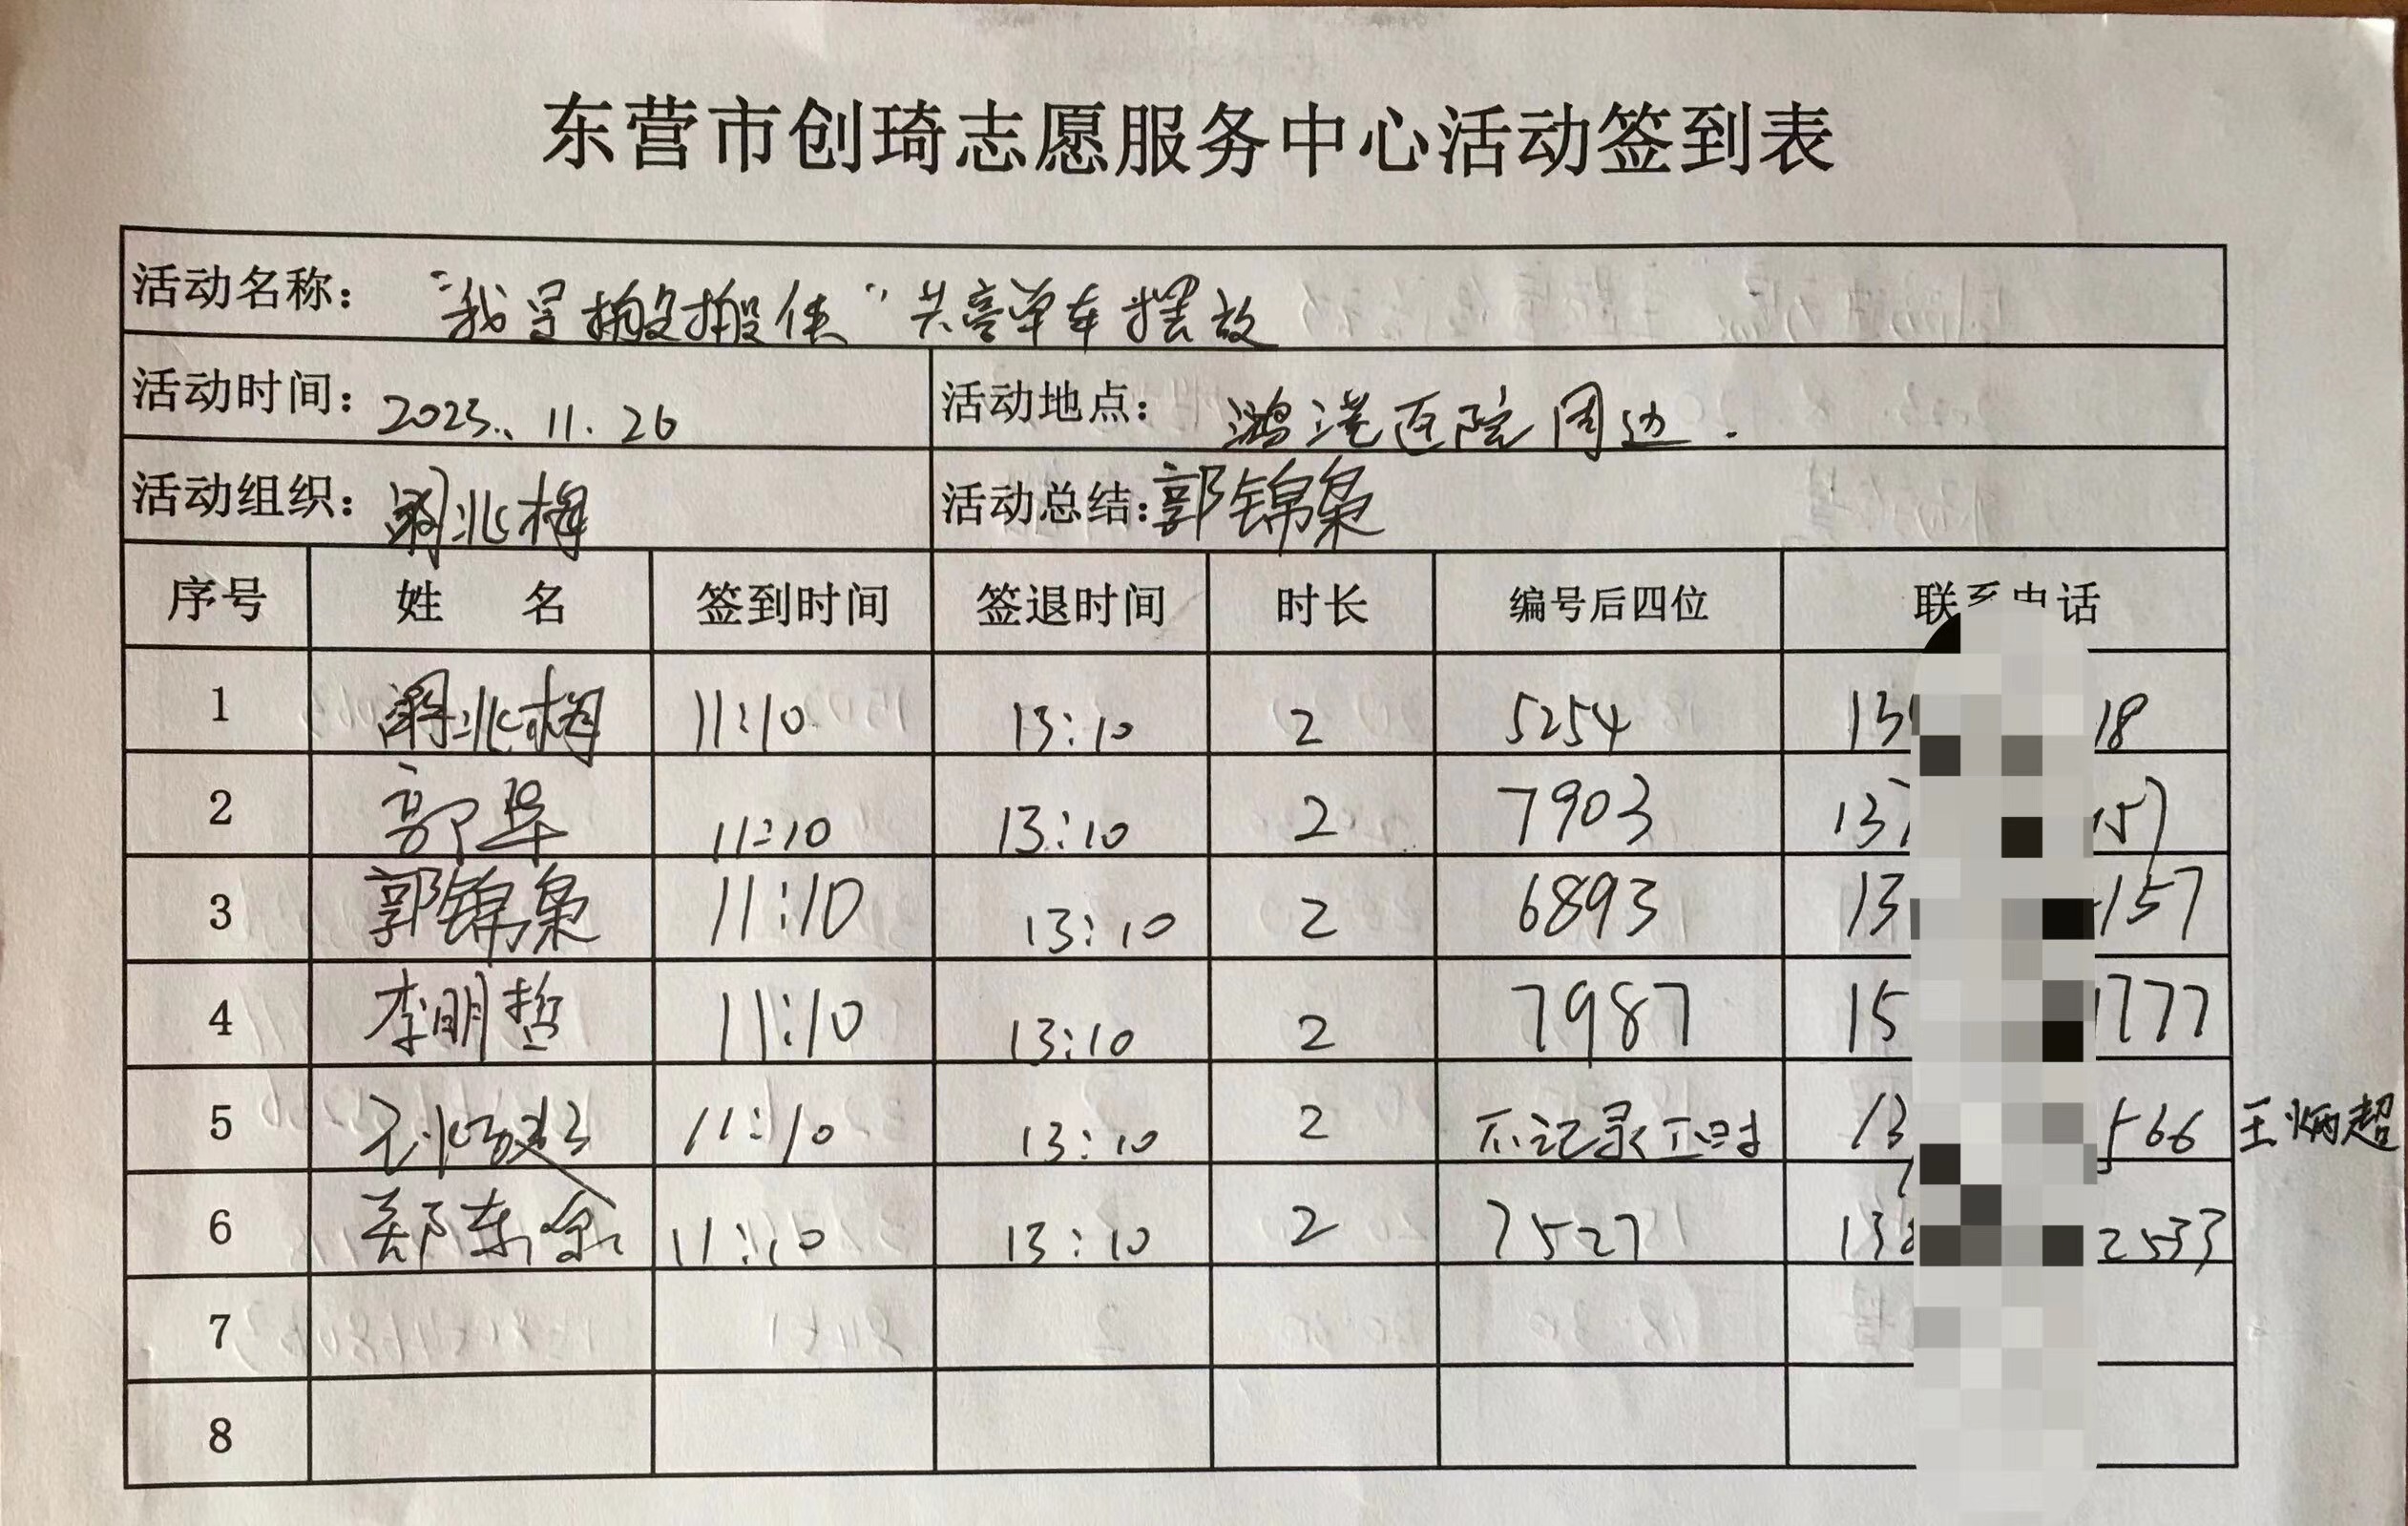 东营市创琦志愿服务中心活动签到表
活动名称： “我是搬搬侠”共享单车摆放
活动时间： 2023.11.26 活动地点： 鸿港医院周边.
活动组织： 活动总结：郭锦枭
序号 姓 名 签到时间 签退时间 时长 编号后四位 联系电话
1 11:10 13:10 2 5254 13 18
2 11:10 13:10 2 7903 137 157
3 郭锦枭 11:10 13:10 2 6893 13 157
4 李明哲 11:10 13:10 2 7987 15 1777
5 王炳超 11:10 13:10 2 不记录工时 13 566 王炳超
6 郑东 11:10 13:10 2 7527 138 2533
7
8